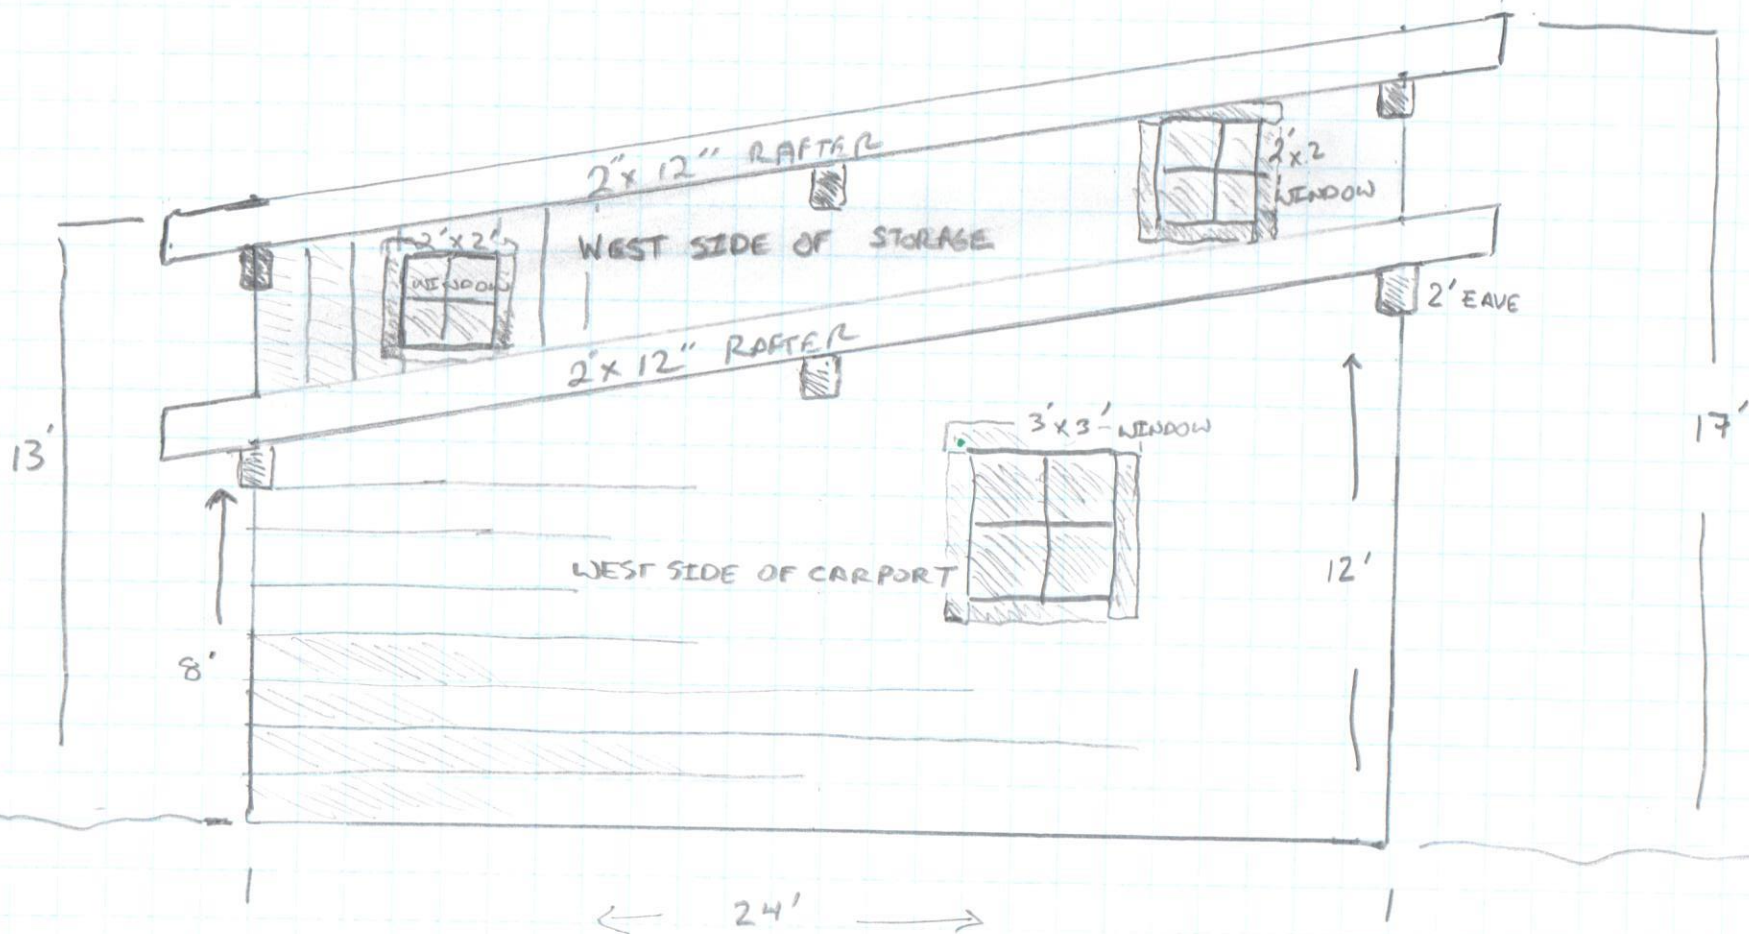 2" x 12" RAFTER
2' x 2
WINDOW
2' x 2'
WINDOW
WEST SIDE OF STORAGE
2' EAVE
2' x 12" RAFTER
3' x 3' WINDOW
13'
17'
WEST SIDE OF CARPORT
12'
8'
24'